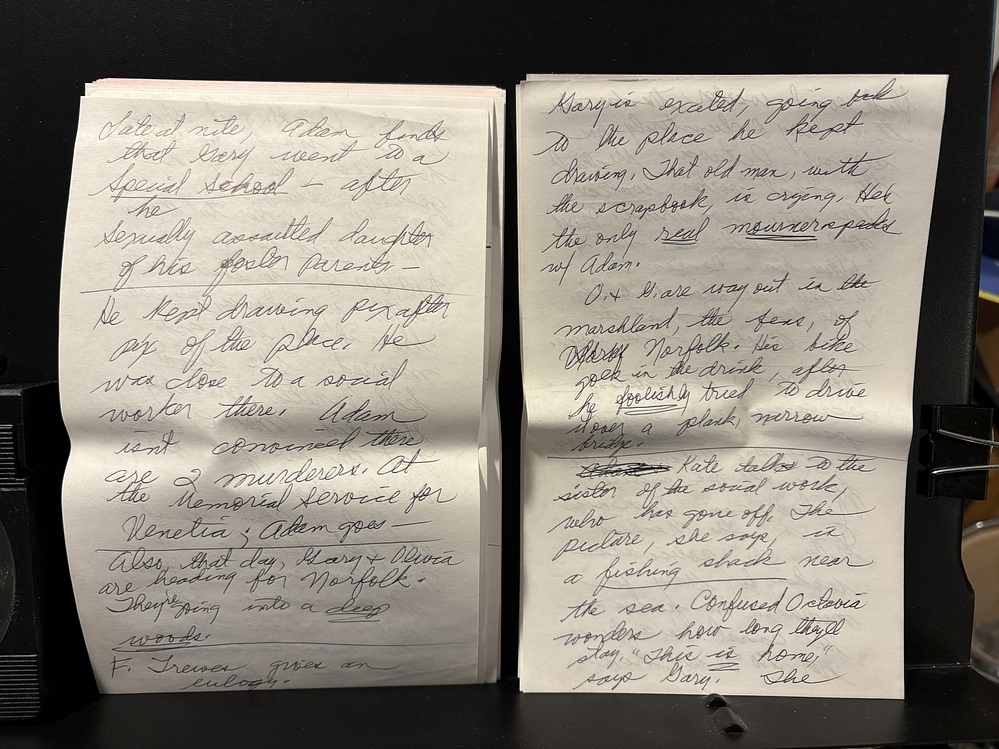 Late at nite, Adam finds
that Gary went to a
Special school — after
he
Sexually assaulted daughter
of his foster parents —
He kept drawing pix after
pix of the place. He
was close to a social
worker there. Adam
isnt convinced there
are 2 murderers. At
the Memorial Service for
Venetia; Adam goes —
Also, that day, Gary + Olivia
are heading for Norfolk.
They're going into a deep
woods.
F. Trewes gives an
eulogy.
Gary is excited, going back
to the place he kept
drawing. That old man, with
the scrapbook is crying. He's
the only real mourner. speaks
w/ Adam.
O. + G. are way out in the
marshland, the fens, of
Norfolk. His bike
goes in the drink, after
he foolishly tried to drive
it over a plank, narrow
bridge.
Kate talks to the
sister of the social work,
who has gone off. The
picture, she says, is
a fishing shack near
the sea. Confused Octavia
wonders how long they'll
stay. "This is home,"
says Gary. She